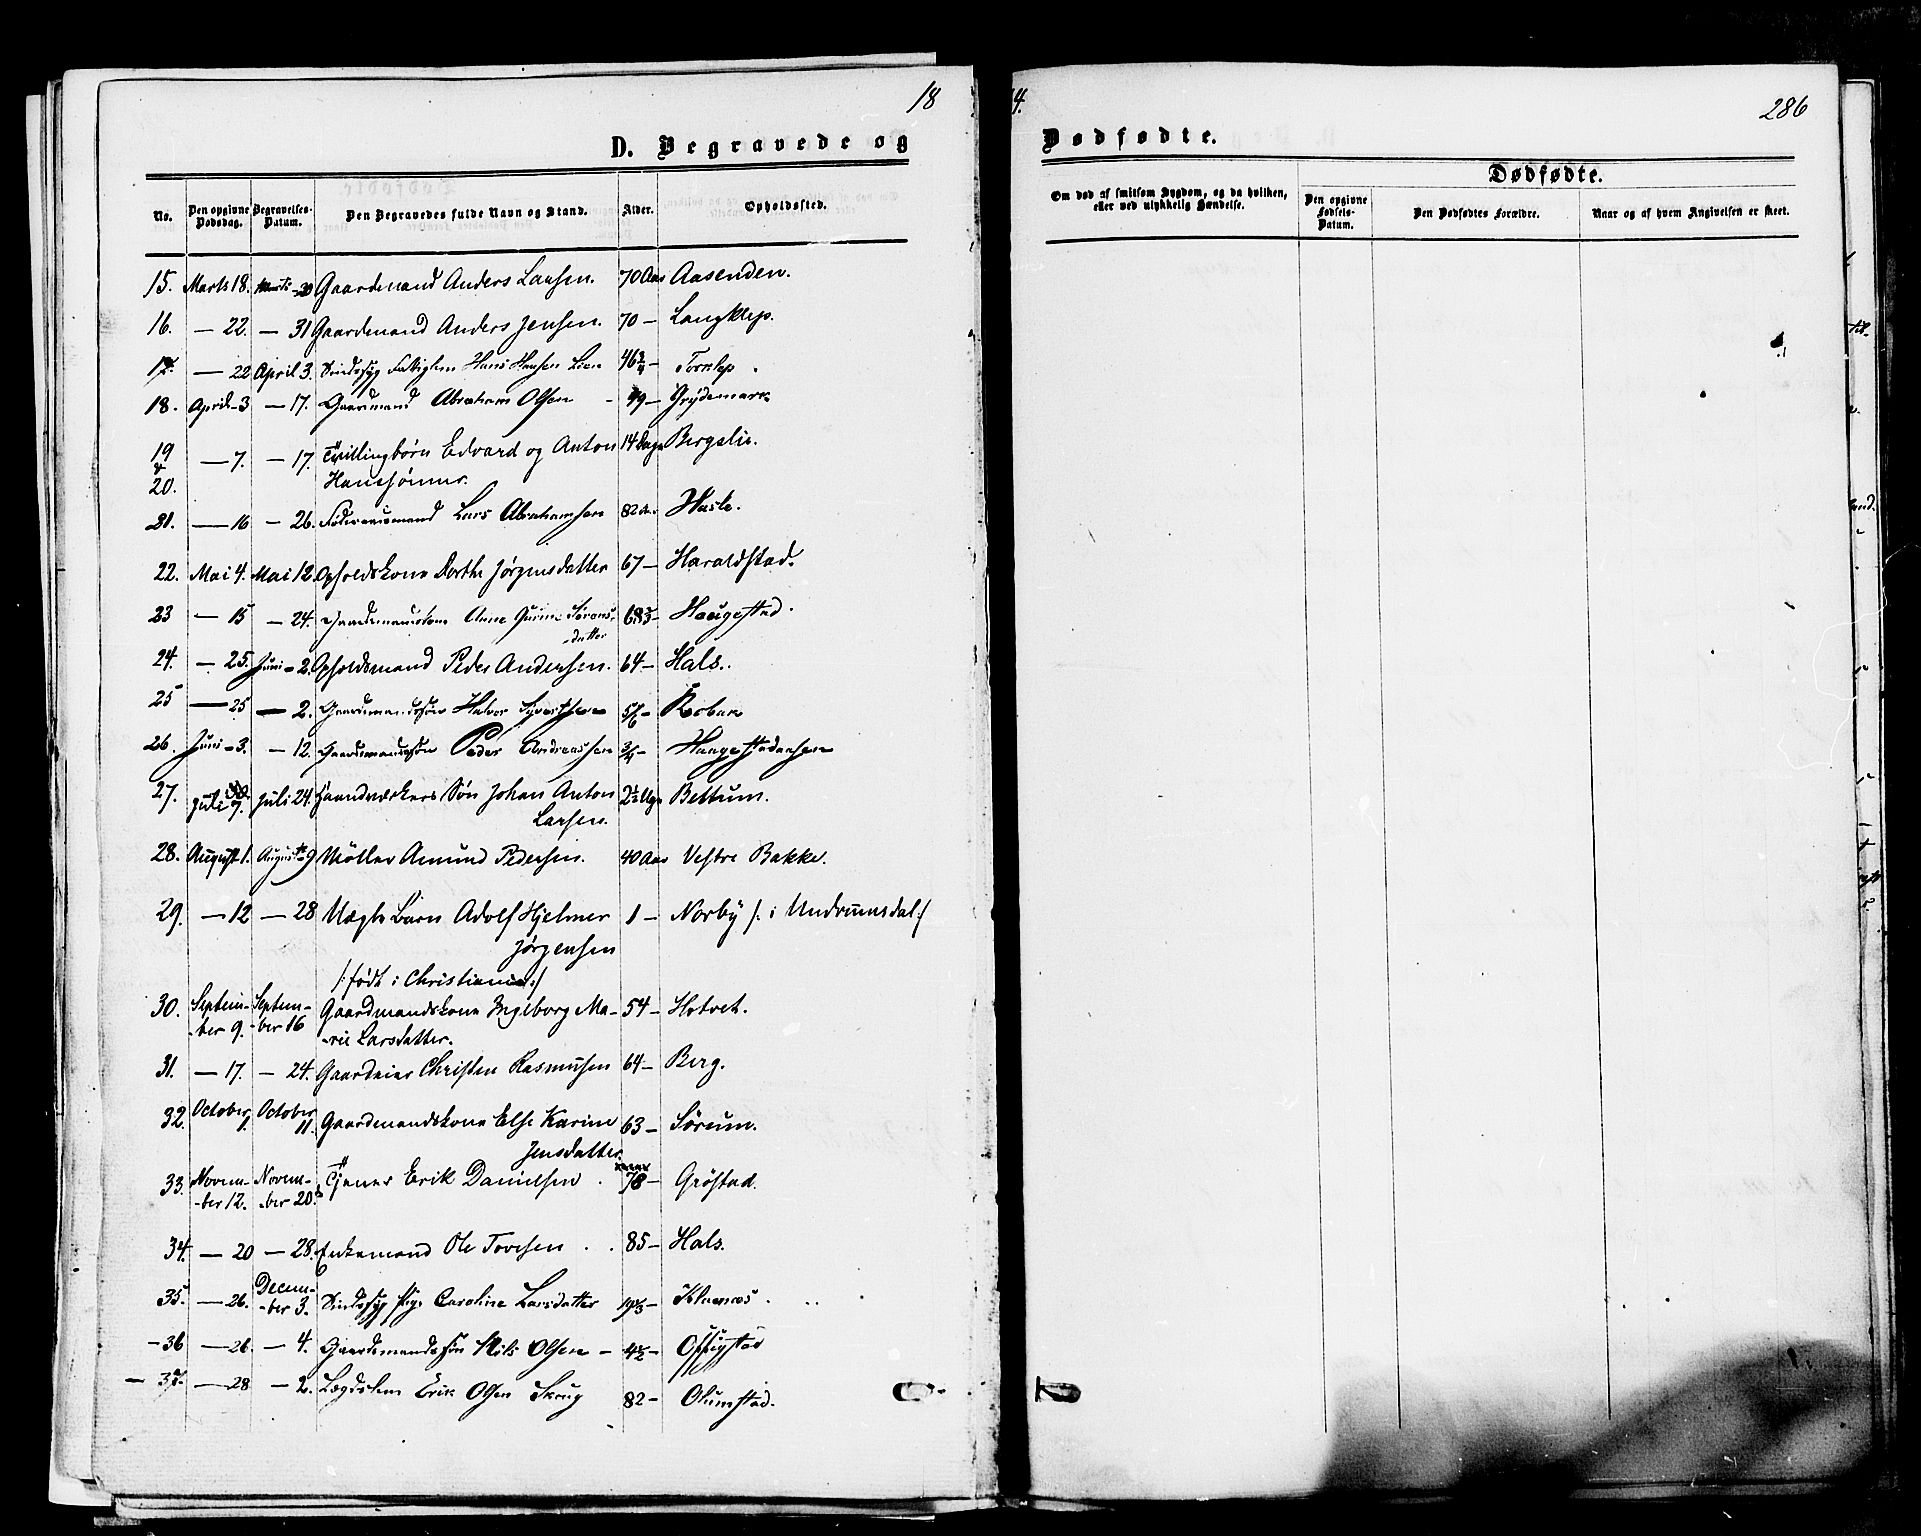 18
D. Begravede og
No. Den opgivne Dødsdag. Begravelses-Datum. Den Begravedes fulde Navn og Stand. Alder. Opholdssted.
15. Marts 18. Marts - 30 Gaardmand Anders Larsen. 70 Aar Aasenden.
16. — 22. — 31 Gaardmand Anders Jensen. 70 — Langklep.
17. — 22 April 3. Sindssyg Fattiglem Hans Hansen Lien 46 3/4 — Tornlep.
18. April - 3 — 17. Gaardmand Abraham Olsen - 49 — Grydemark
19 & 20. — 7. — 17. Tvillingbørn Edvard og Anton 14 Dage Bergslie.
Hanssønner.
21. — 16 — 26. Føderaadsmand Lars Abrahamsen 82 A. Hasle.
22. Mai 4. Mai 12. Opholdskone Dorthe Jørgensdatter 67 — Haraldstad.
23 — 15 — 24. Gaardmandskone Anne Gurine Sørens-
datter 68 — Haugestad.
24. — 25. Juni - 2. Opholdsmand Peder Andersen. 64 — Hals.
25 — 25 — 2. Gaardmandssøn Halvor Syvertsen 5/6 — Robæk
26. Juni - 3. — 12. Gaardmandssøn Peder Andreassen 3/4 — Haugestadaasen
27. Juli 7. Juli 24. Haandværkers Søn Johan Anton 2 1/2 Uge Bettum.
Larsen.
28. August 1. August 9 Møller Amund Pedersen. 40 Aar Vestre Bakke.
29. — 12 — 28 Uægte Barn Adolf Hjelmer 1 — Norby /: i Undrumsdal :/
Jørgensen
/: født i Christiania :/
30. Septem-ber 9. Septem-ber 16 Gaardmandskone Ingeborg Ma- 54 — Hotvet.
-rie Larsdatter.
31. — 17. — 24. Gaardeier Christen Rasmusen 64 — Berg.
32. October 1. October 11. Gaardmandskone Else Karine 63 — Sørum.
Jensdatter.
33. Novem-ber 12. Novem-ber 20. Tjener Erik Danielsen. 78 — Grøstad.
34. — 20 — 28. Enkemand Ole Tovesen . . 85 — Hals.
35. — 26. Decem-ber 3. Sindssyg Pige Caroline Larsdatter 19 — Kluenæs.
- 36 — 26. — 4. Gaardmandssøn Nils Olsen — 4 1/2 — Offigstad
- 37. — 28 — 2. Lægdslem Erik Olsen Skrug 82 — Olumstad.
4.
286
Dødfødte.
Om død af smitsom Sygdom, og da hvilken, eller ved ulykkelig Hændelse.
Dødfødte.
Den opgivne Fødsels-Datum. Den Dødfødtes Forældre. Naar og af hvem Angivelsen er skeet.